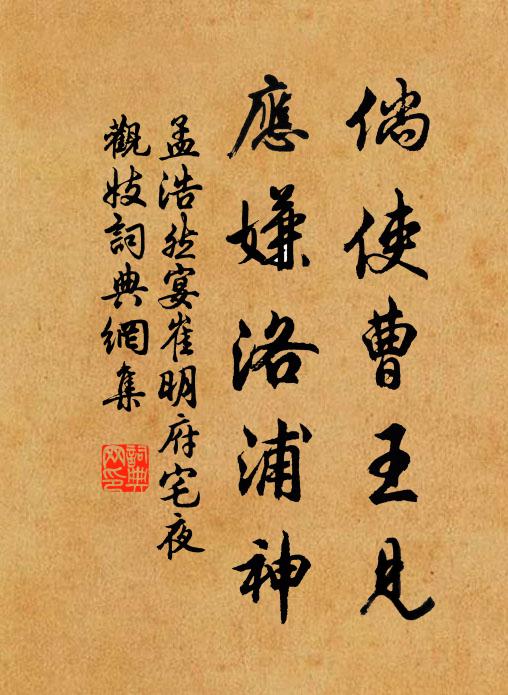 倘使曹王見
應嫌洛浦神
孟浩然宴崔明府宅夜
觀妓詞典網集
詞典
网印